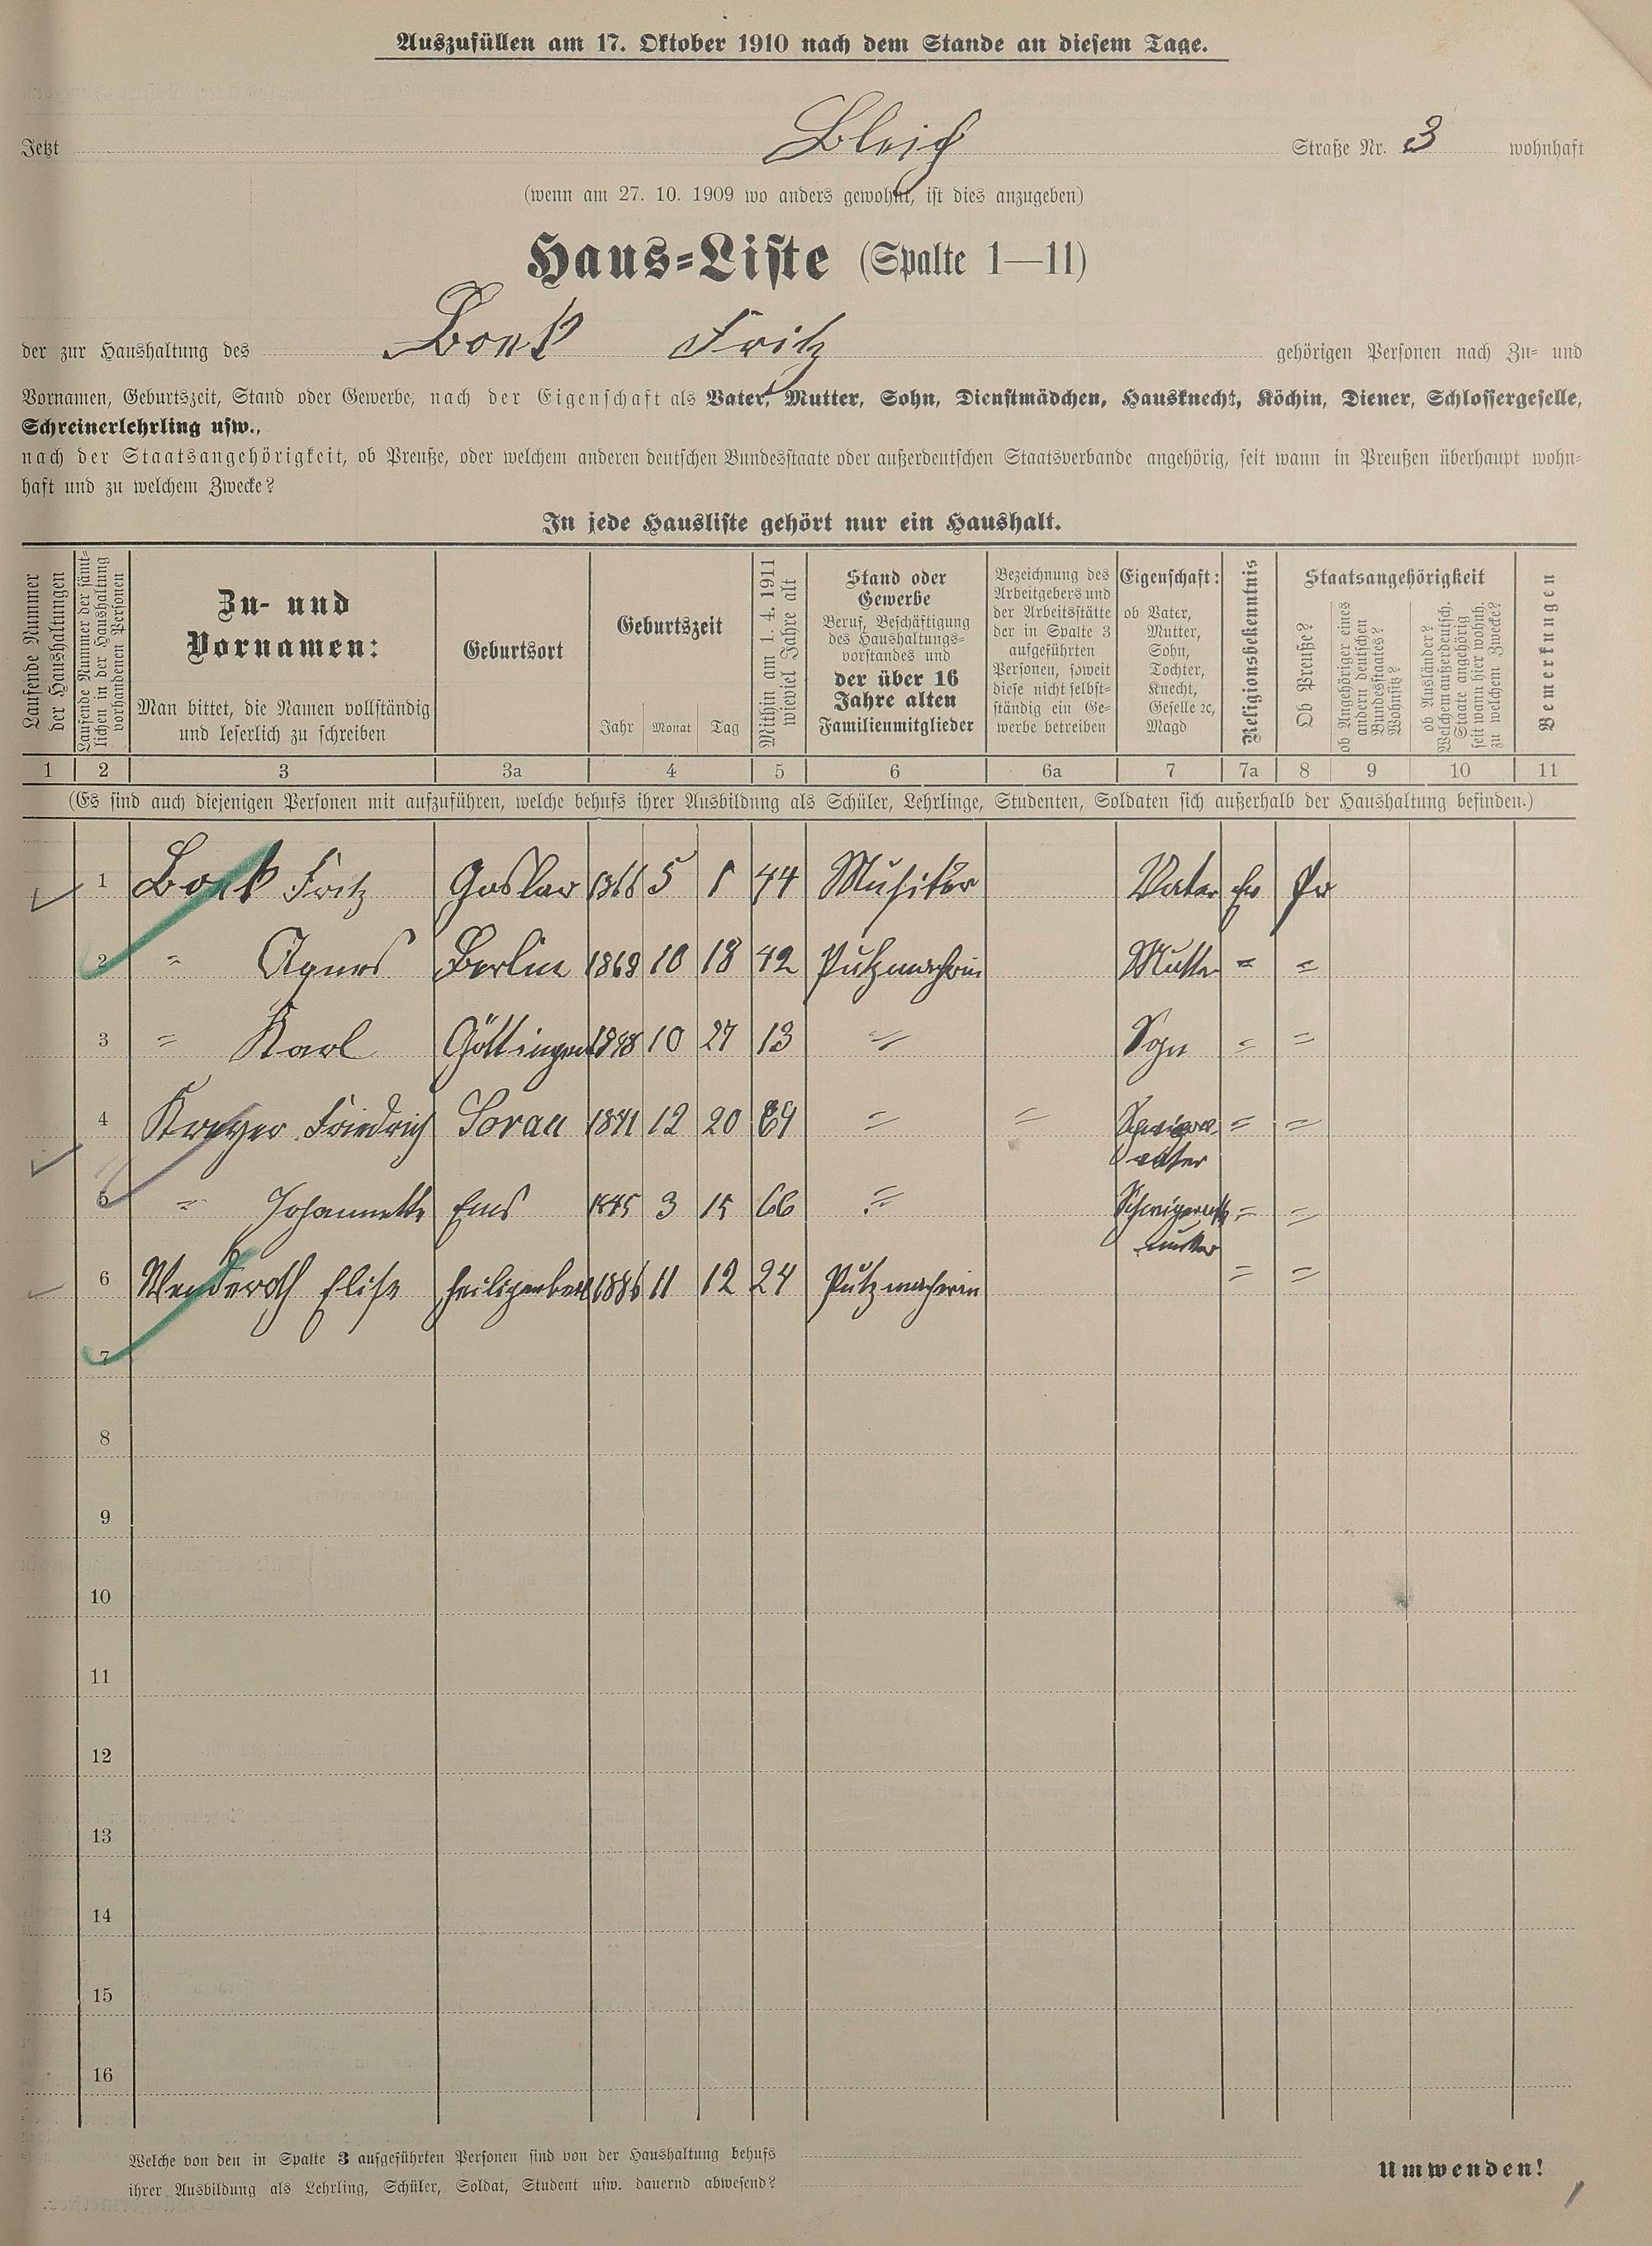 Auszufüllen am 17. Oktober 1910 nach dem Stande an diesem Tage.
Jetzt Bleich Straße Nr. 3 wohnhaft
(wenn am 27. 10. 1909 wo anders gewohnt, ist dies anzugeben)
Haus-Liste (Spalte 1—11)
der zur Haushaltung des Bonk Fritz gehörigen Personen nach Zu- und
Vornamen, Geburtszeit, Stand oder Gewerbe, nach der Eigenschaft als Vater, Mutter, Sohn, Dienstmädchen, Hausknecht, Köchin, Diener, Schlossergeselle,
Schreinerlehrling usw.,
nach der Staatsangehörigkeit, ob Preuße, oder welchem anderen deutschen Bundesstaate oder außerdeutschen Staatsverbande angehörig, seit wann in Preußen überhaupt wohn-
haft und zu welchem Zwecke?
In jede Hausliste gehört nur ein Haushalt.
Laufende Nummer
der Haushaltungen
Laufende Nummer der sämt-
lichen in der Haushaltung
vorhandenen Personen
Zu- und
Vornamen:
Man bittet, die Namen vollständig
und leserlich zu schreiben
Geburtsort
Geburtszeit
Jahr Monat Tag
Mithin am 1. 4. 1911
wieviel Jahre alt
Stand oder
Gewerbe
Beruf, Beschäftigung
des Haushaltungs-
vorstandes und
der über 16
Jahre alten
Familienmitglieder
Bezeichnung des
Arbeitgebers und
der Arbeitsstätte
der in Spalte 3
aufgeführten
Personen, soweit
diese nicht selbst-
ständig ein Ge-
werbe betreiben
Eigenschaft:
ob Vater,
Mutter,
Sohn,
Tochter,
Knecht,
Geselle ꝛc,
Magd
Religionsbekenntnis
Staatsangehörigkeit
Ob Preuße?
ob Angehöriger eines
andern deutschen
Bundesstaates?
Wohnsitz?
ob Ausländer?
Welchem außerdeutsch.
Staate angehörig
seit wann hier wohnh.
zu welchem Zwecke?
Bemerkungen
1 2 3 3a 4 5 6 6a 7 7a 8 9 10 11
(Es sind auch diejenigen Personen mit aufzuführen, welche behufs ihrer Ausbildung als Schüler, Lehrlinge, Studenten, Soldaten sich außerhalb der Haushaltung befinden.)
1 Bonk Fritz Goslar 1866 5 1 44 Musiker Vater Ev Pr
2 " Agnes Berlin 1868 10 18 42 Putzmacherin Mutter = =
3 = Karl Göttingen 10 27 13 = Sohn = =
4 Friedrich Sorau 1841 12 20 69 = = Schwieger-
vater = =
5 = Johannette Ems 1845 3 15 66 = Schwieger
mutter = =
6 Wenderoth Elise 1886 11 12 24 Putzmacherin = =
7
8
9
10
11
12
13
14
15
16
Welche von den in Spalte 3 aufgeführten Personen sind von der Haushaltung behufs
ihrer Ausbildung als Lehrling, Schüler, Soldat, Student usw. dauernd abwesend?
Umwenden!